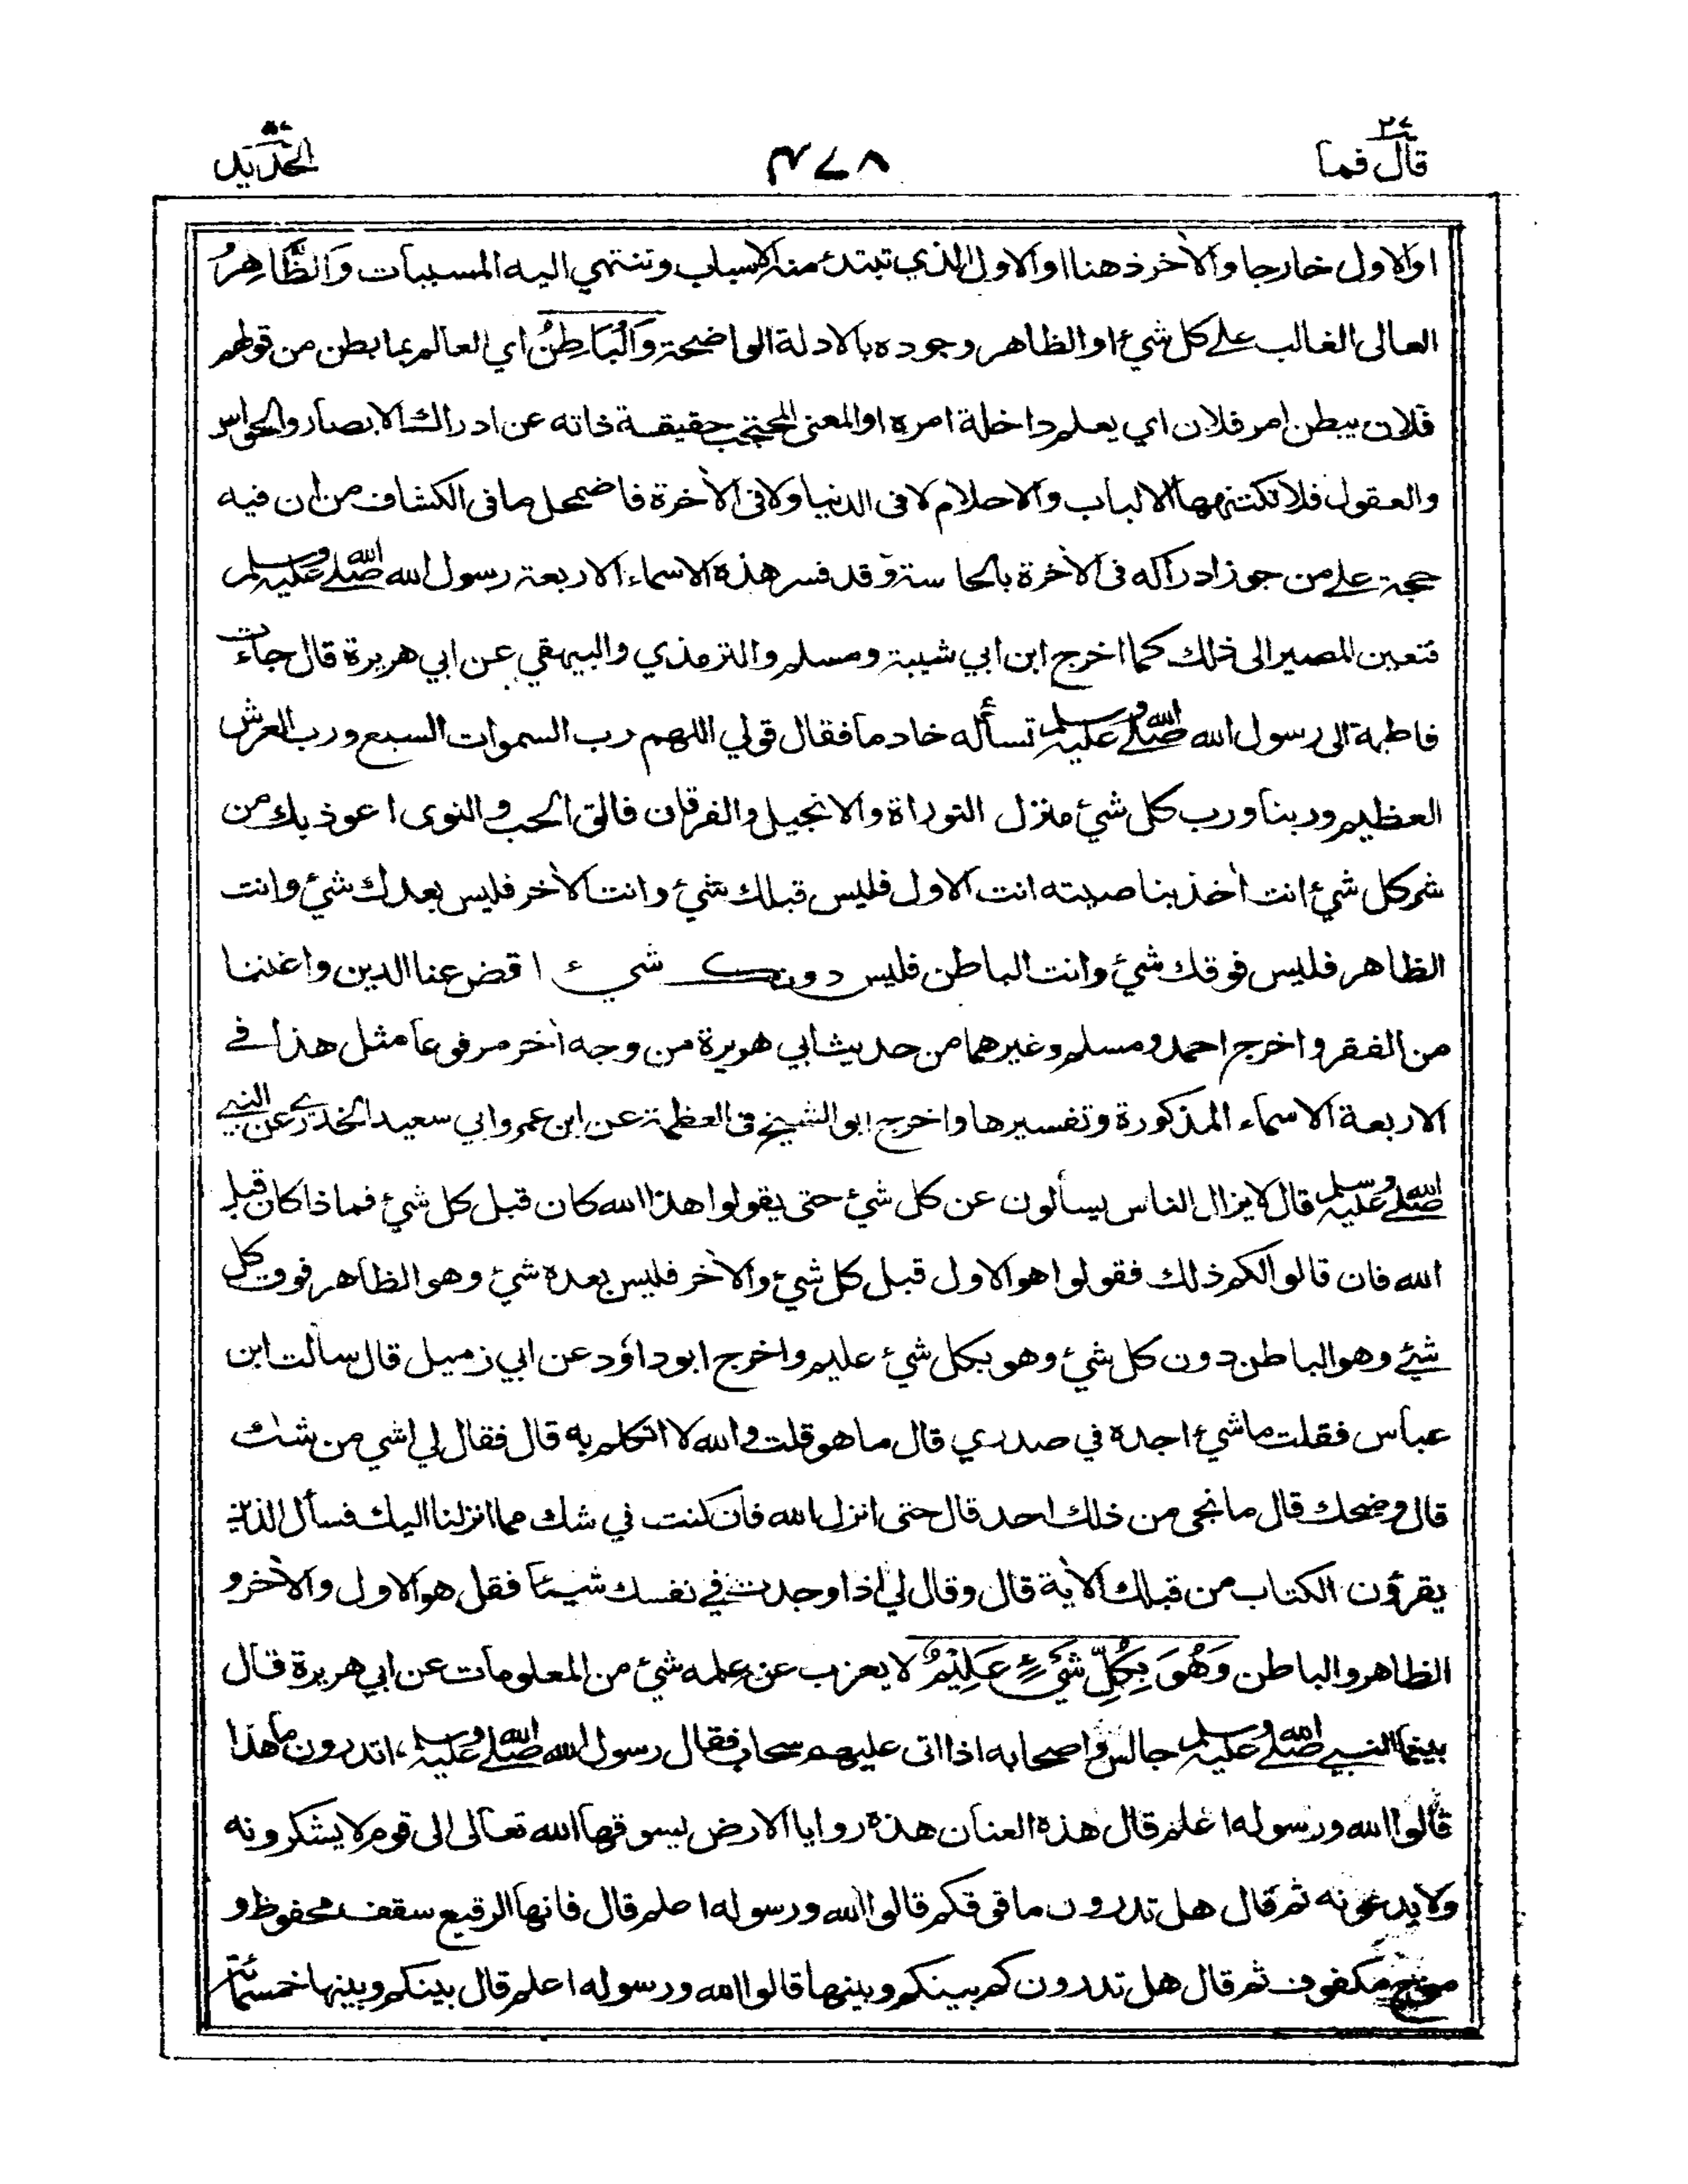 قال فما ٢٧
٤٧٨
الحديد ٥٧
او الاول خارجا والآخر ذهنا او الاول الذي تبتدئ منه الاسباب وتنتهي اليه المسببات وَالظَّاهِرُ
العالى الغالب على كل شيء او الظاهر وجوده بالادلة الواضحة وَالْبَاطِنُ اي العالم بما بطن من قولهم
فلان يبطن امر فلان اي يعلم داخلة امره او المعنى المحتجب حقيقة ذاته عن ادراك الابصار والحواس
والعقول فلا تكتنهها الالباب والاحلام لا فى الدنيا ولا فى الآخرة فاضمحل ما فى الكشاف من ان فيه
حجة على من جوز ادراكه فى الآخرة بالحاسة وقد فسر هذه الاسماء الاربعة رسول الله صلى الله عليه وسلم
فتعين المصير الى ذلك كما اخرج ابن ابي شيبة ومسلم والترمذي والبيهقي عن ابي هريرة قال جاءت
فاطمة الى رسول الله صلى الله عليه وسلم تسأله خادما فقال قولي اللهم رب السموات السبع ورب العرش
العظيم وربنا ورب كل شيء منزل التوراة والانجيل والفرقان فالق الحب والنوى اعوذ بك من
شر كل شيء انت آخذ بناصيته انت الاول فليس قبلك شيء وانت الآخر فليس بعدك شيء وانت
الظاهر فليس فوقك شيء وانت الباطن فليس دونك شيء اقض عنا الدين واغننا
من الفقر واخرج احمد ومسلم وغيرهما من حديث ابي هريرة من وجه آخر مرفوعا مثل هذا في
الاربعة الاسماء المذكورة وتفسيرها واخرج ابو الشيخ فى العظمة عن ابن عمر وابي سعيد الخدري عن النبي
صلى الله عليه وسلم قال لا يزال الناس يسألون عن كل شيء حتى يقولوا هذا الله كان قبل كل شيء فماذا كان قبل
الله فان قالوا لكم ذلك فقولوا هو الاول قبل كل شيء والآخر فليس بعده شيء وهو الظاهر فوق كل
شيء وهو الباطن دون كل شيء وهو بكل شيء عليم واخرج ابو داؤد عن ابي زميل قال سالت ابن
عباس فقلت ما شيء اجده في صدري قال ما هو قلت والله لا اتكلم به قال فقال لي اشي من شك
قال وضحك قال ما نجى من ذلك احد قال حتى انزل الله فان كنت في شك مما انزلنا اليك فسأل الذين
يقرؤن الكتاب من قبلك الآية قال وقال لي اذا وجدت في نفسك شيئا فقل هو الاول والآخر و
الظاهر والباطن وَهُوَ بِكُلِّ شَيْءٍ عَلِيْمٌ لا يعزب عن علمه شيء من المعلومات عن ابي هريرة قال
بينما النبي صلى الله عليه وسلم جالس واصحابه اذ اتى عليهم سحاب فقال رسول الله صلى الله عليه وسلم اتدرون ما هذا
قالوا الله ورسوله اعلم قال هذه العنان هذه روايا الارض يسوقها الله تعالى الى قوم لا يشكرونه
ولا يدعونه ثم قال هل تدرون ما فوقكم قالوا الله ورسوله اعلم قال فانها الرقيع سقف محفوظ و
موج مكفوف ثم قال هل تدرون كم بينكم وبينها قالوا الله ورسوله اعلم قال بينكم وبينها خمسمائة